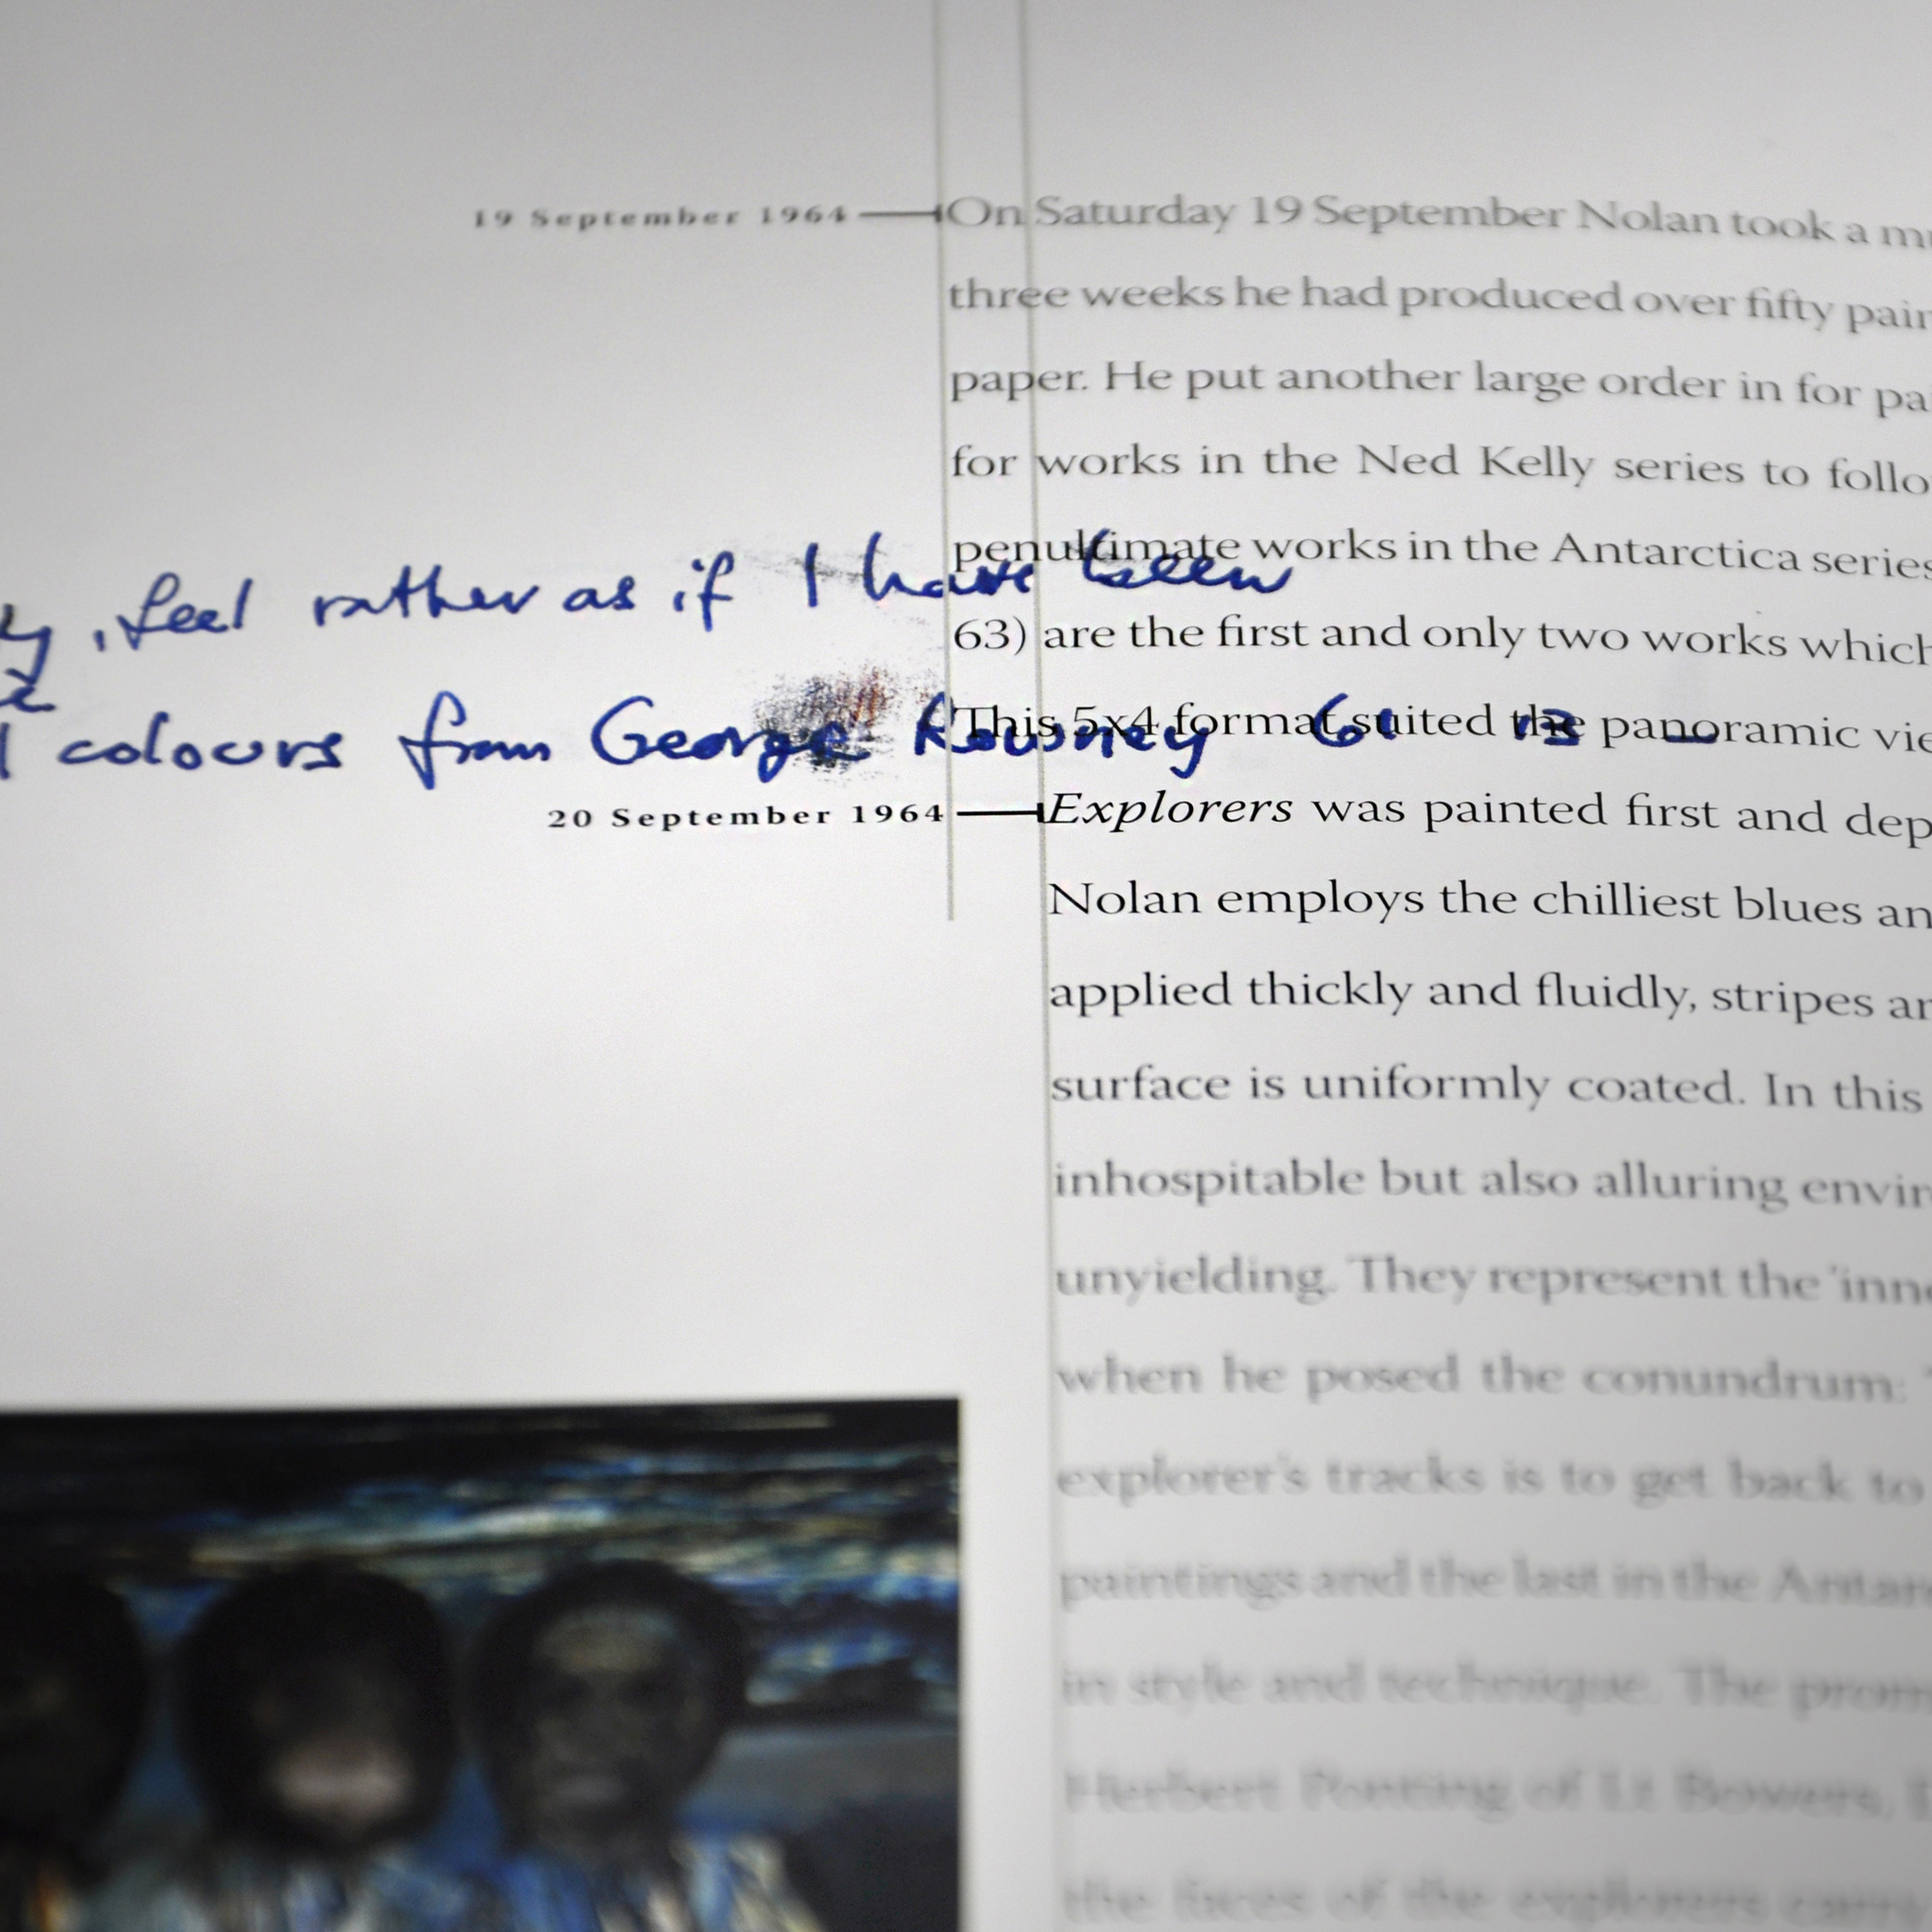 19 September 1964
On Saturday 19 September Nolan took a
three weeks he had produced over fifty
paper. He put another large order in for
for works in the Ned Kelly series to
penultimate works in the Antarctica series
63) are the first and only two works which
This 5x4 format suited the panoramic
, feel rather as if I have been
colours from George Rowney
20 September 1964
Explorers was painted first and
Nolan employs the chilliest blues
applied thickly and fluidly, stripes
surface is uniformly coated. In this
inhospitable but also alluring
unyielding. They represent the
when he posed the conundrum:
explorer's tracks is to get back to
paintings and the last in the
in style and technique. The
Herbert Ponting of Lt Bowers,
the faces of the explorers